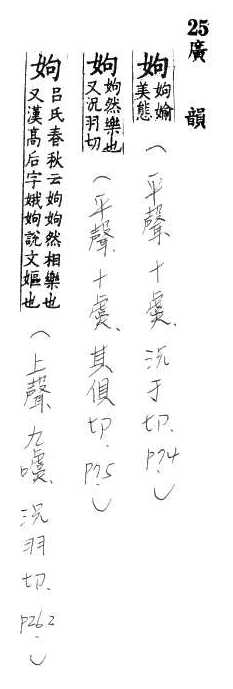 25廣韻
姁姁媮美態(平聲十虞、況于切、P74)
姁姁然樂也又況羽切(平聲十虞、其俱切、P75)
姁呂氏春秋云姁姁然相樂也又漢高后字娥姁說文嫗也(上聲九噳、況羽切、P262)